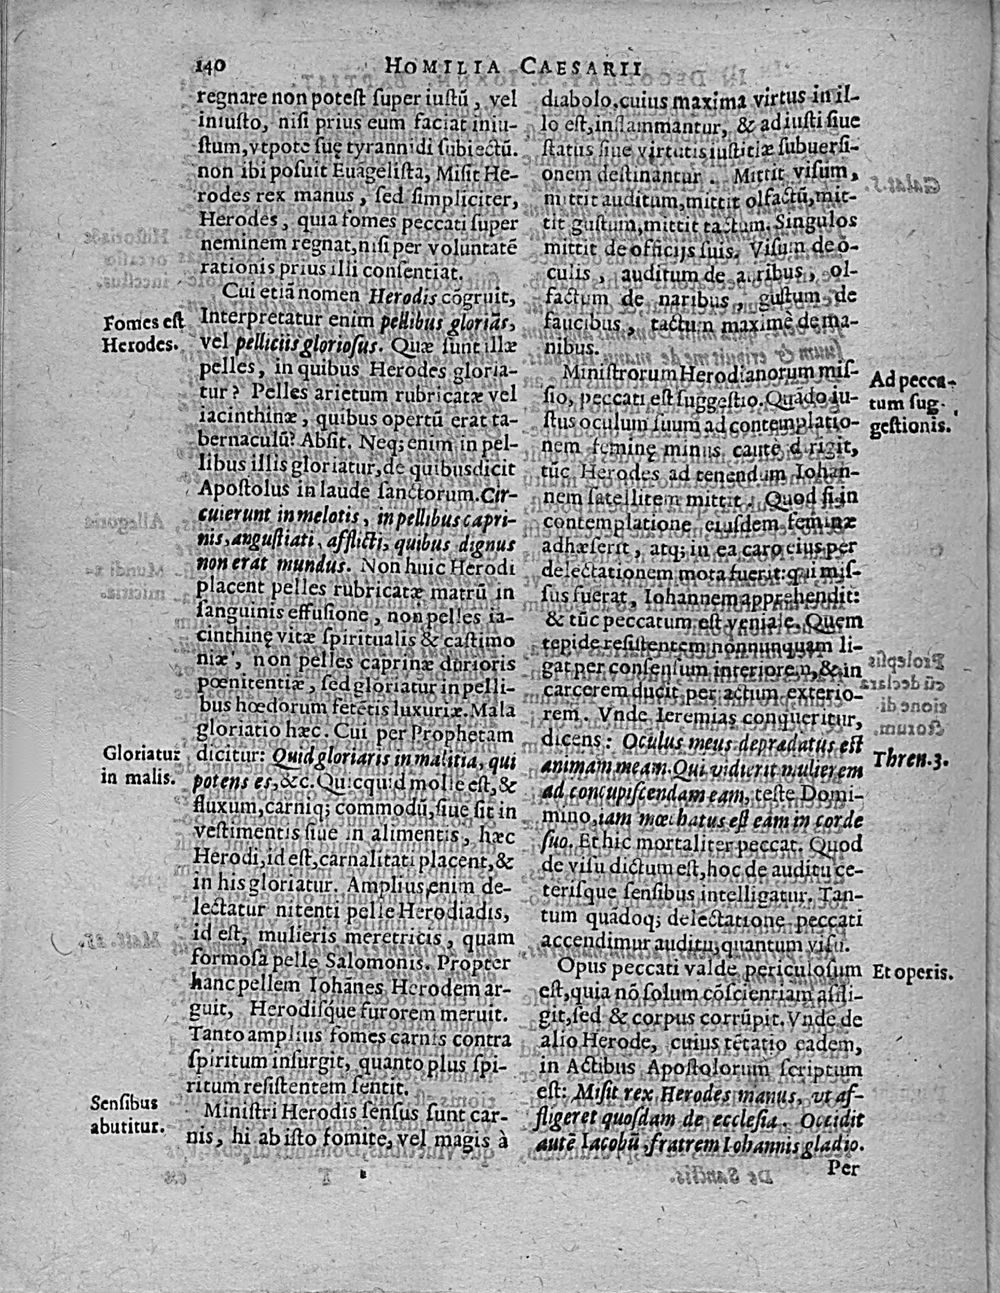 140 HOMILIA CAESARII
regnare non potest super iustū, vel
iniusto, nisi prius eum faciat iniu-
stum, vtpote suę tyrannidi subiectū.
non ibi posuit Euāgelista, Misit He-
rodes rex manus, sed simpliciter,
Herodes, quia fomes peccati super
neminem regnat, nisi per voluntatē
rationis prius illi consentiat.
Cui etiā nomen Herodis cōgruit,
Interpretatur enim pellibus gloriās,
vel pelliciis gloriosus. Quæ sunt illæ
pelles, in quibus Herodes gloria-
tur? Pelles arietum rubricatæ vel
iacinthinæ, quibus opertū erat ta-
bernaculū? Absit. Neq; enim in pel-
libus illis gloriatur, de quibus dicit
Apostolus in laude sanctorum. Cir-
cuierunt in melotis, in pellibus capri-
nis, angustiati, afflicti, quibus dignus
non erat mundus. Non huic Herodi
placent pelles rubricatæ matrū in
sanguinis effusione, non pelles ia-
cinthinę vitæ spiritualis & castimo
niæ, non pelles caprinæ durioris
pœnitentiæ, sed gloriatur in pelli-
bus hœdorum fetētis luxuriæ. Mala
gloriatio hæc. Cui per Prophetam
dicitur: Quid gloriaris in malitia, qui
potens es, &c. Quicquid molle est, &
fluxum, carniq; commodū, siue sit in
vestimentis siue in alimentis, hæc
Herodi, id est, carnalitati placent, &
in his gloriatur. Amplius enim de-
lectatur nitenti pelle Herodiadis,
id est, mulieris meretricis, quàm
formosa pelle Salomonis. Propter
hanc pellem Iohānes Herodem ar-
guit, Herodisque furorem meruit.
Tanto amplius fomes carnis contra
spiritum insurgit, quanto plus spi-
ritum resistentem sentit.
Ministri Herodis sensus sunt car-
nis, hi ab isto fomite, vel magis à
Fomes est
Herodes.
Gloriatur
in malis.
Sensibus
abutitur.
diabolo, cuius maxima virtus in il-
lo est, inflammantur, & ad iusti siue
status siue virtutis iustitiæ subuersi-
onem destinantur. Mittit visum,
mittit auditum, mittit olfactū, mit-
tit gustum, mittit tactum. Singulos
mittit de officijs suis. Visum de o-
culis, auditum de auribus, ol-
factum de naribus, gustum de
faucibus, tactum maximè de ma-
nibus.
Ministrorum Herodianorum mis-
sio, peccati est suggestio. Quādo iu-
stus oculum suum ad contemplatio-
nem feminę minus cautè dirigit,
tūc Herodes ad tenendum Iohan-
nem satellitem mittit. Quod si in
contemplatione eiusdem feminæ
adhæserit, atq; in ea caro eius per
delectationem mota fuerit: qui mis-
sus fuerat, Iohannem apprehendit:
& tūc peccatum est veniale. Quem
tepide resistentem nonnunquam li-
gat per consensum interiorem, & in
carcerem ducit per actum exterio-
rem. Vnde Ieremias conqueritur,
dicens: Oculus meus depradatus est
animam meam. Qui viderit mulierem
ad concupiscendam eam, teste Domi-
mino, iam mœchatus est eam in corde
suo. Et hic mortaliter peccat. Quod
de visu dictum est, hoc de auditu ce-
terisque sensibus intelligatur. Tan-
tum quādoq; delectatione peccati
accendimur auditu, quantum visu.
Opus peccati valde periculosum
est, quia nō solum cōscientiam affli-
git, sed & corpus corrūpit. Vnde de
alio Herode, cuius tētatio eadem,
in Actibus Apostolorum scriptum
est: Misit rex Herodes manus, ut af-
fligeret quosdam de ecclesia. Occidit
autē Iacobū, fratrem Iohannis gladio.
Per
Ad pecca-
tum sug-
gestionis.
Thren. 3.
Et operis.